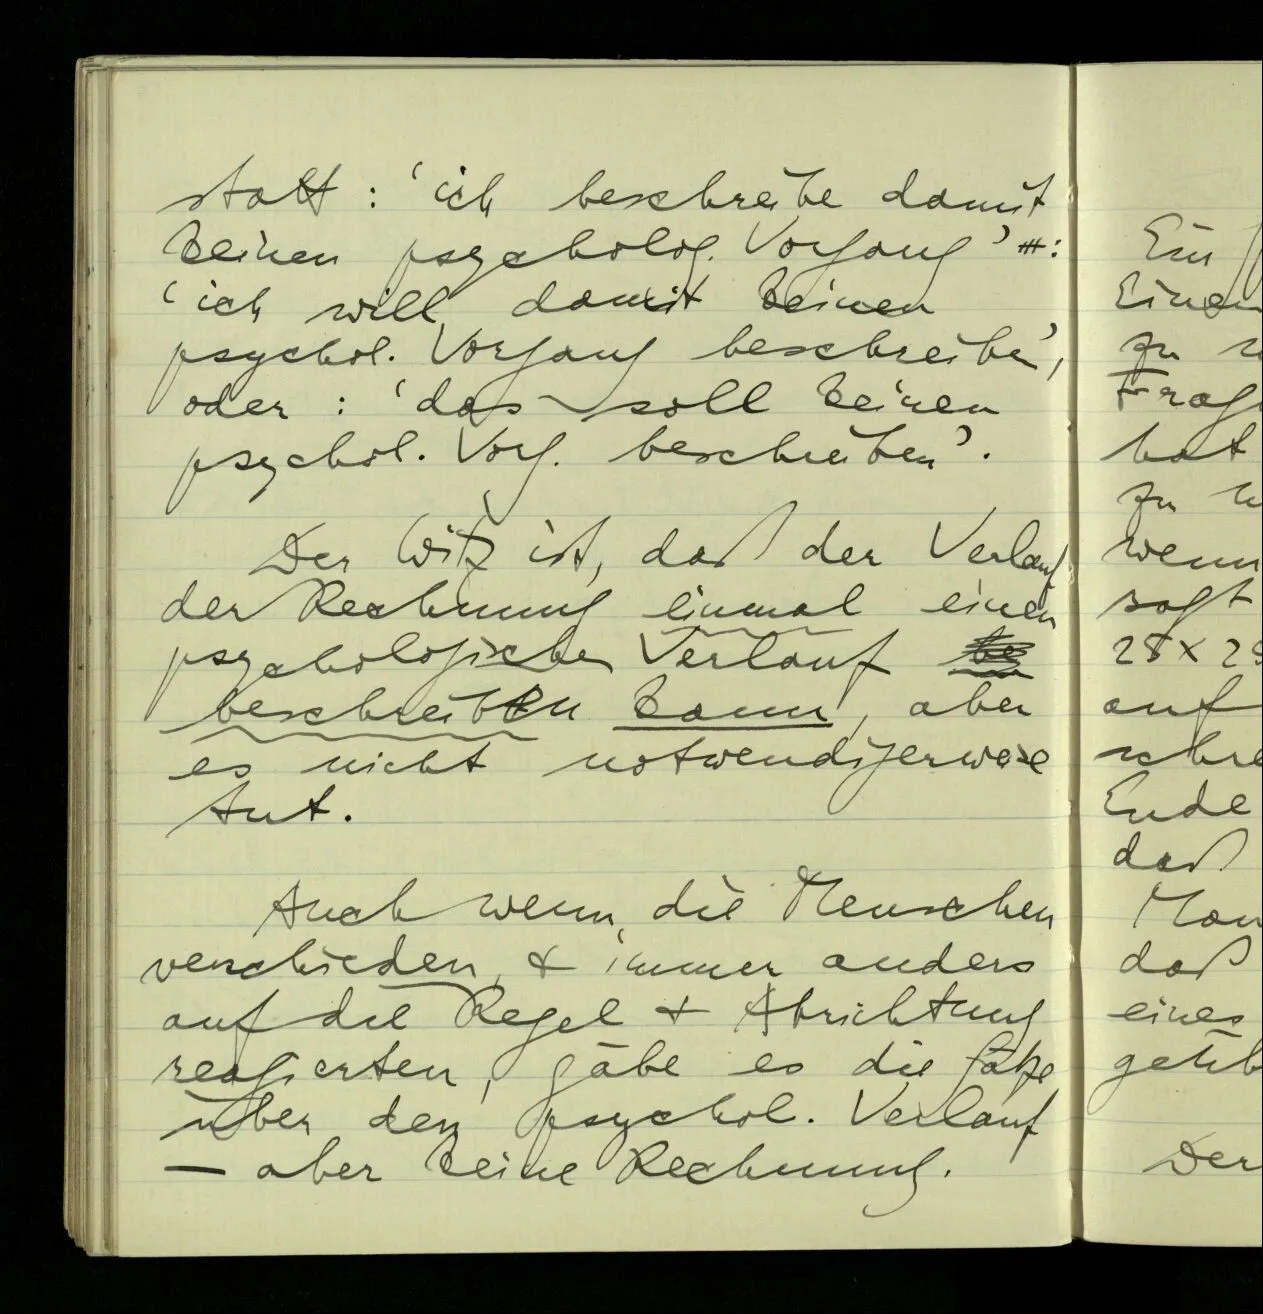 statt : 'ich beschreibe damit
keinen psycholog. Vorgang' :
'ich will damit keinen
psychol. Vorgang beschreiben',
oder : 'das soll keinen
psychol. Vorg. beschreiben'.
Der Witz ist, daß der Verlauf
der Rechnung einmal einen
psychologischen Verlauf
beschreiben kann, aber
es nicht notwendigerweise
tut.
Auch wenn die Menschen
verschieden, & immer anders
auf die Regel & Abrichtung
reagierten, gäbe es die Sätze
über den psychol. Verlauf
— aber keine Rechnung.
Ein
Einen
zu
Frage
hat
zu
wenn
sagt
25 x 25
auf
schre
Ende
daß
Man
daß
eines
geüb
Der